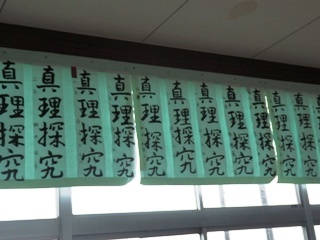 真理探究
真理探究
真理探究
真理探究
真理探究
真理探究
真理探究
真理探究
真理探究
真理探究
真理探究